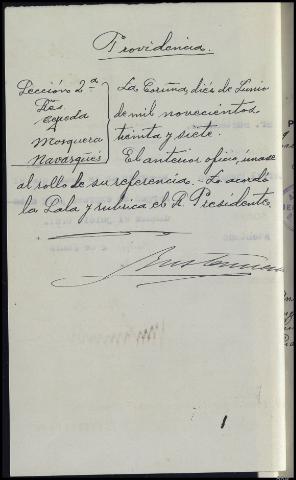 Providencia.
Sección 2ª
Sres.
Cepeda
Mosquera
Navarqués
La Coruña, diés de Junio
de mil novecientos
treinta y siete.
El anterior oficio, únase
al rollo de su referencia.- Lo acordó
la Sala y rubrica el Sr. Presidente.
1